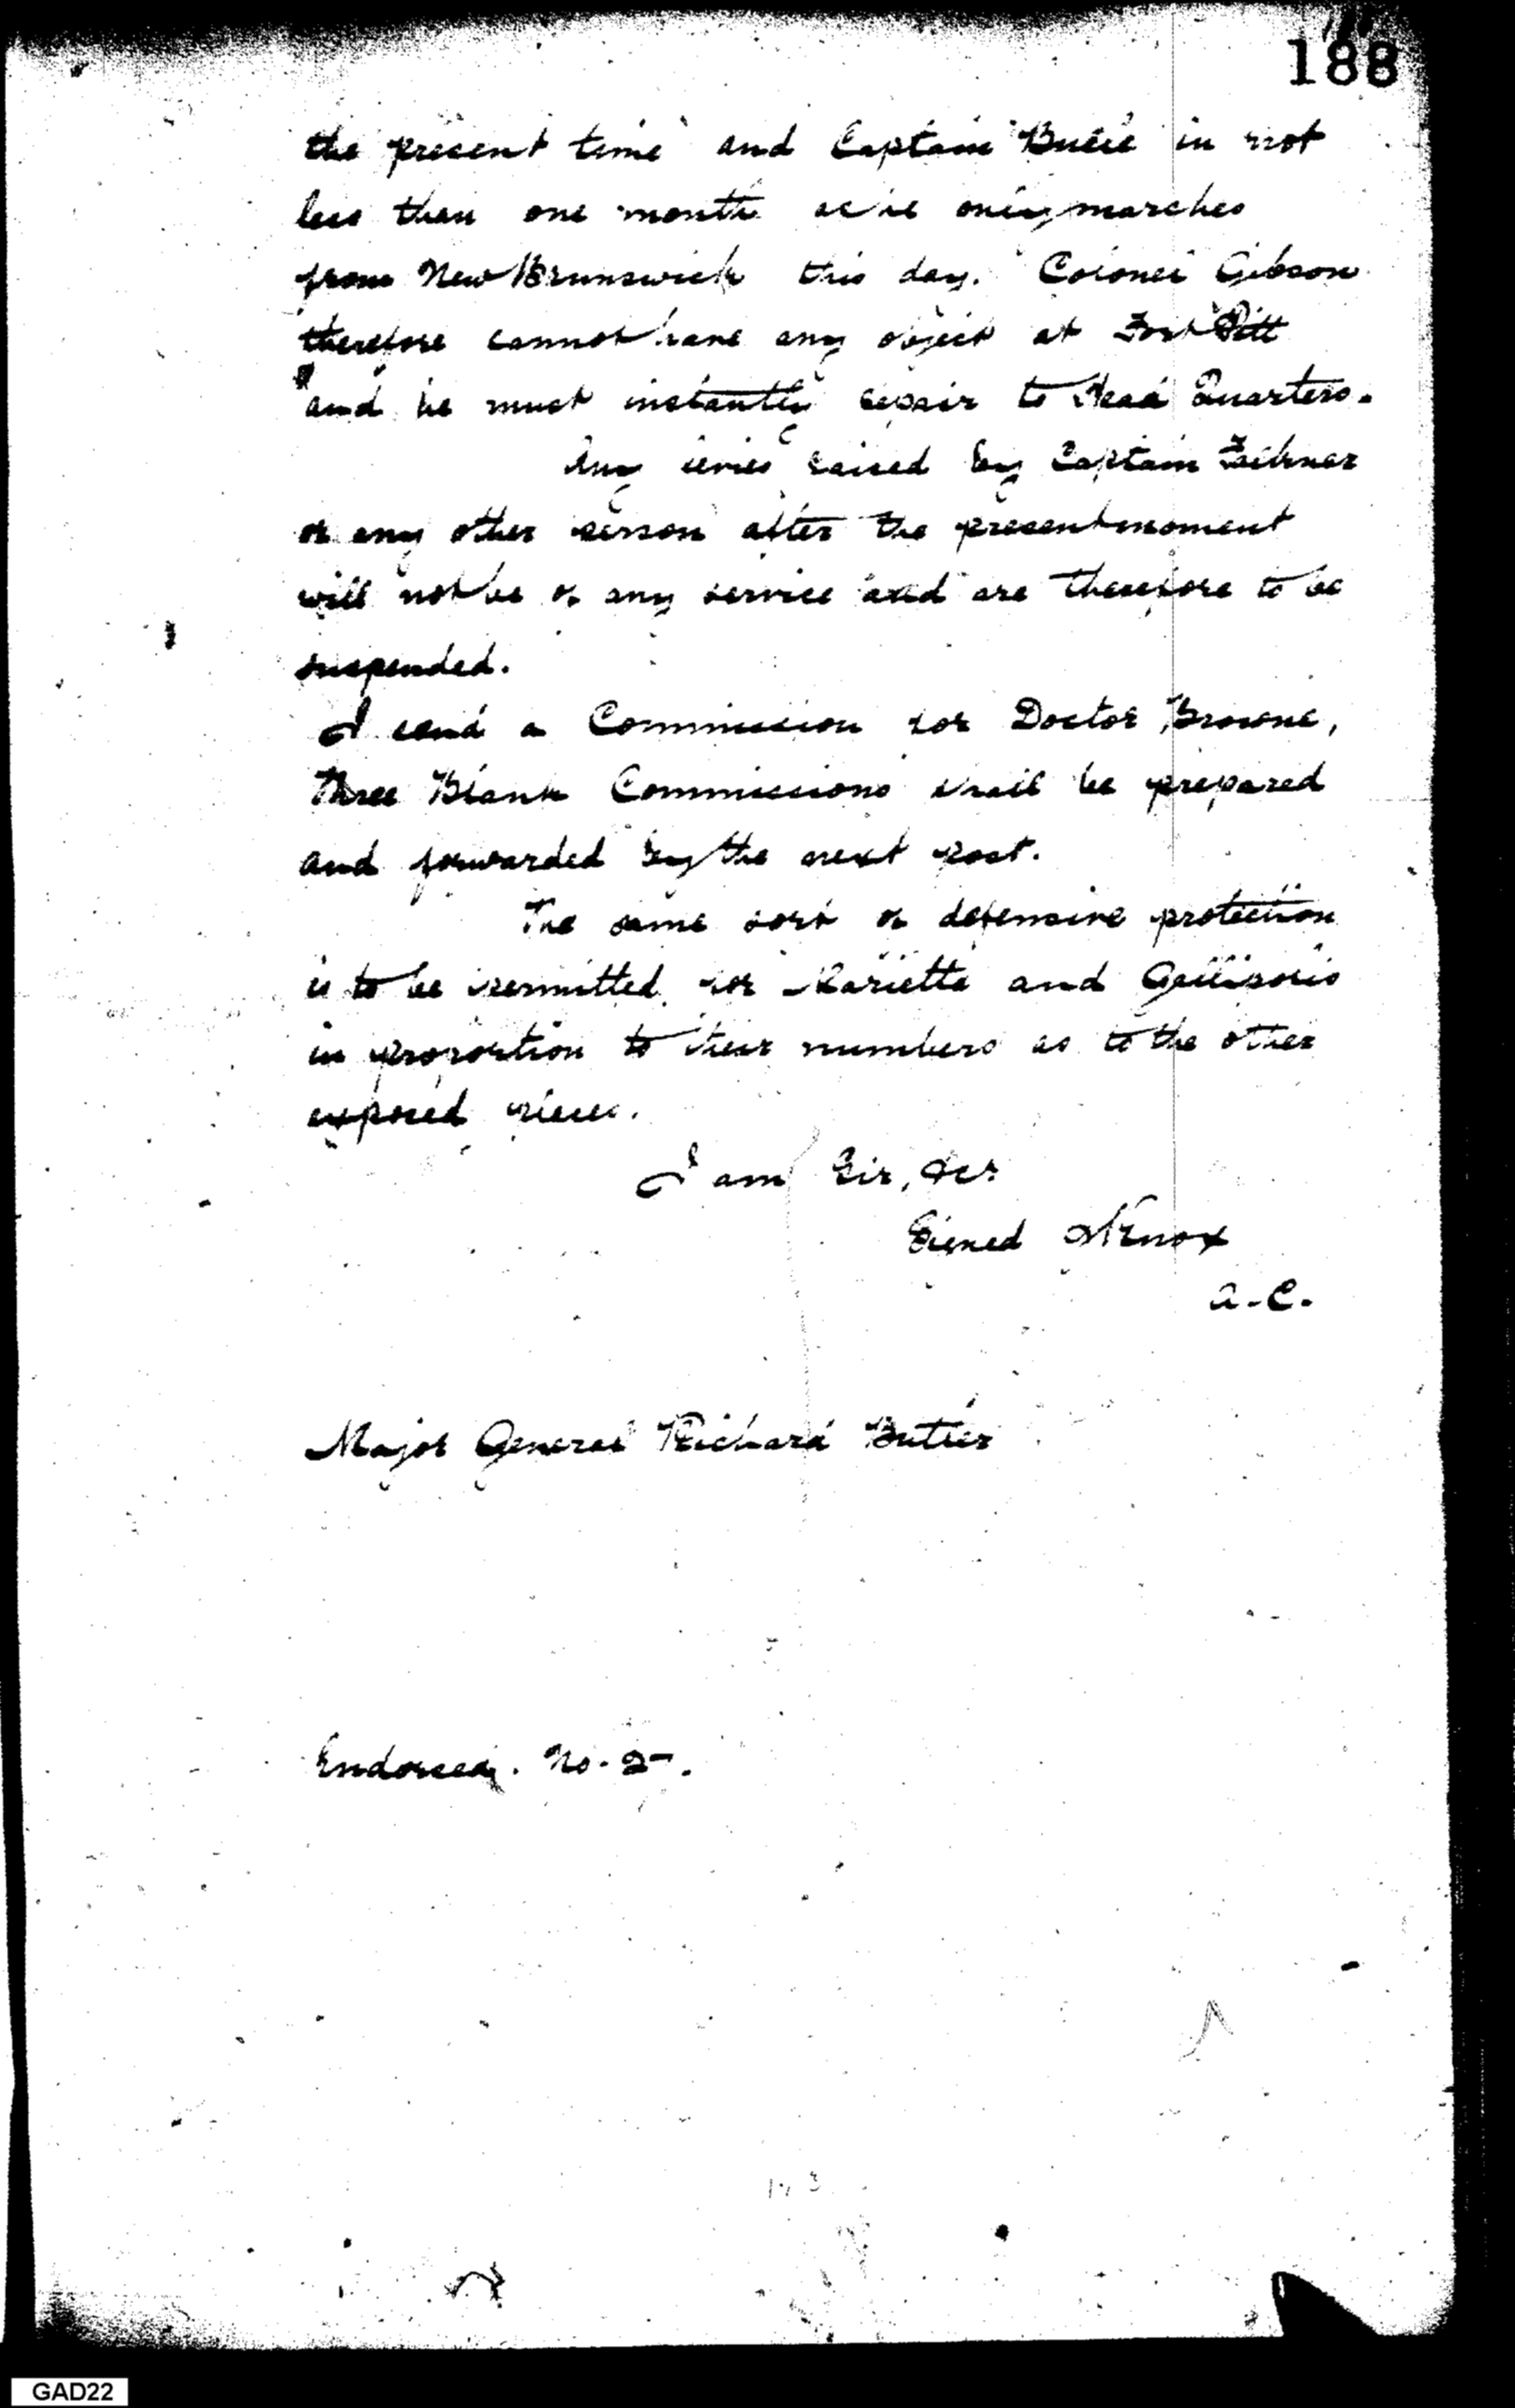 188
the present time and Captain in not
less than one month as he only marches
from New Brunswick this day. Colonel Gibson
therefore cannot have any object at Fort Pitt
and he must instantly repair to Head Quarters.
Any levies raised by Captain Faulkner
or any other person after the present moment
will not be of any service and are therefore to be
suspended.
I send a Commission for Doctor Browne,
Three Blank Commissions shall be prepared
and forwarded by the next post.
The same sort of defensive protection
is to be permitted for Marietta and Gallipolis
in proportion to their numbers as to the other
exposed places.
I am Sir, &c.
Signed HKnox
Major General Richard Butler
Endorsed. No. 2
GAD22